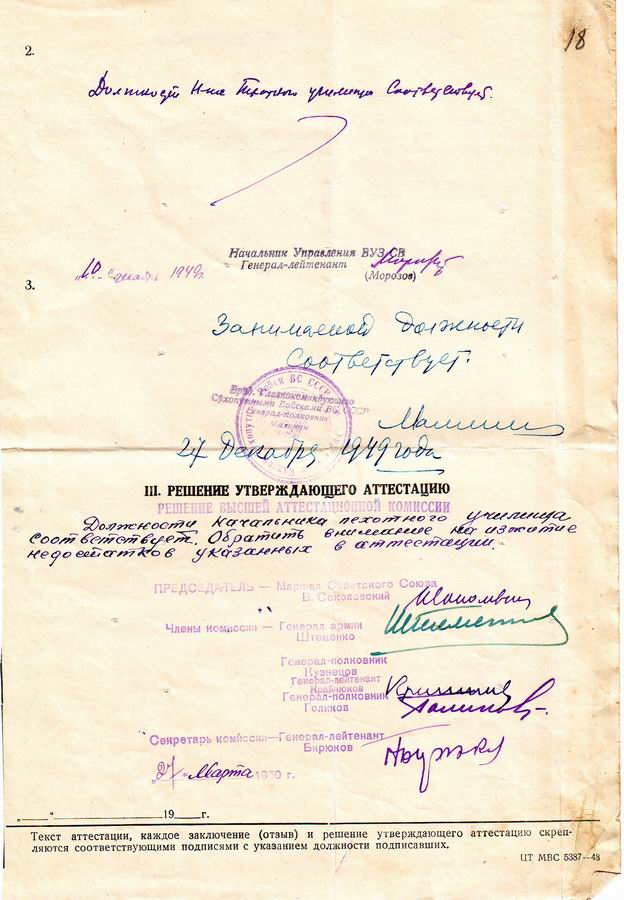 18
2.
Должности Н-ка Пехотного училища Соответствует.
Начальник Управления ВУЗ СВ
Генерал-лейтенант
(Морозов)
„10" декабрь 1949г.
3.
Занимаемой должности
Соответствует.
Врид. Главнокомандующего
Сухопутными Войсками ВС СССР
Генерал-полковник
Маланин
27 Декабря 1949 года
III. РЕШЕНИЕ УТВЕРЖДАЮЩЕГО АТТЕСТАЦИЮ
РЕШЕНИЕ ВЫСШЕЙ АТТЕСТАЦИОННОЙ КОМИССИИ
Должности начальника пехотного училища
соответствует. Обратить внимание на изжитие
недостатков указанных в аттестации.
ПРЕДСЕДАТЕЛЬ — Маршал Советского Союза
В. Соколовский
Члены комиссии — Генерал армии
Штеменко
Генерал-полковник
Кузнецов
Генерал-лейтенант
Крайнюков
Генерал-полковник
Голиков
Секретарь комиссии—Генерал-лейтенант
Бирюков
„27" Марта 1950 г.
„——"——————19——г.
Текст аттестации, каждое заключение (отзыв) и решение утверждающего аттестацию скреп-
ляются соответствующими подписями с указанием должности подписавших.
ЦТ МВС 5387—48